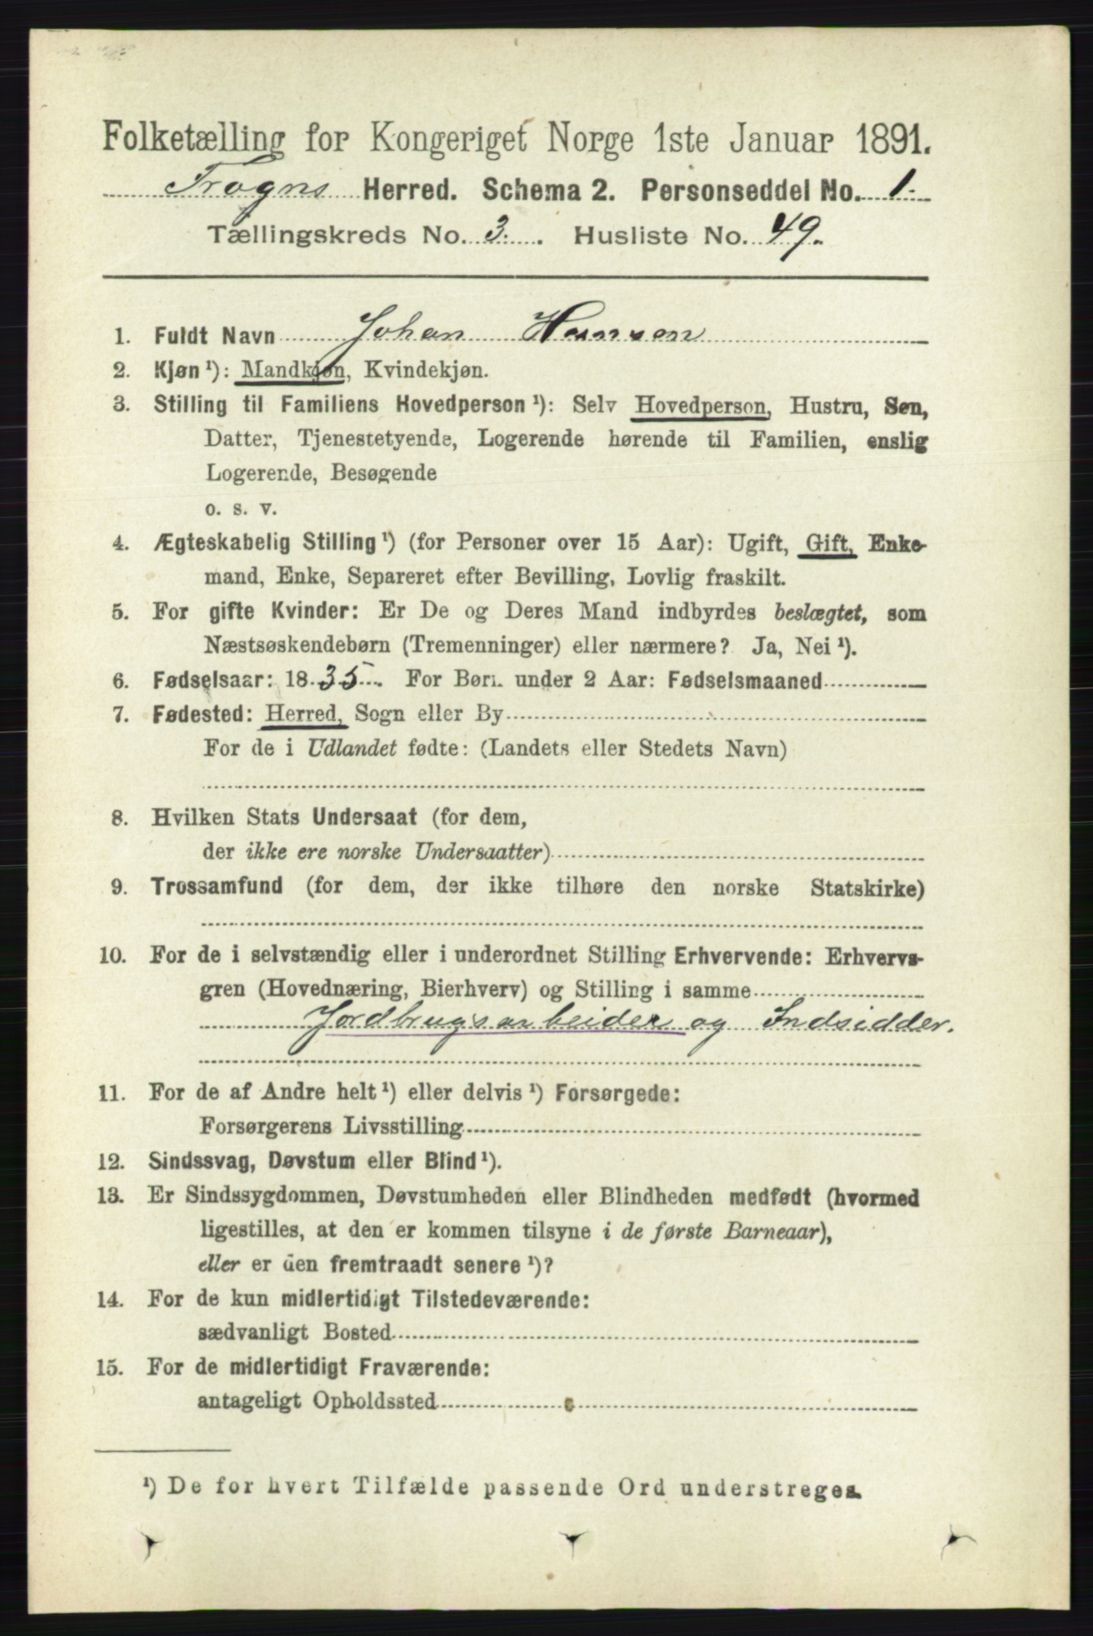 Folketælling for Kongeriget Norge 1ste Januar 1891.
Frogns Herred. Schema 2. Personseddel No. 1.
Tællingskreds No. 3. Husliste No. 49.
1. Fuldt Navn Johan Hansen
2. Kjøn ¹): Mandkjøn, Kvindekjøn.
3. Stilling til Familiens Hovedperson ¹): Selv Hovedperson, Hustru, Søn,
Datter, Tjenestetyende, Logerende hørende til Familien, enslig
Logerende, Besøgende
o. s. v.
4. Ægteskabelig Stilling ¹) (for Personer over 15 Aar): Ugift, Gift, Enke-
mand, Enke, Separeret efter Bevilling, Lovlig fraskilt.
5. For gifte Kvinder: Er De og Deres Mand indbyrdes beslægtet, som
Næstsøskendebørn (Tremenninger) eller nærmere? Ja, Nei ¹).
6. Fødselsaar: 1835. For Børn under 2 Aar: Fødselsmaaned
7. Fødested: Herred, Sogn eller By
For de i Udlandet fødte: (Landets eller Stedets Navn)
8. Hvilken Stats Undersaat (for dem,
der ikke ere norske Undersaatter)
9. Trossamfund (for dem, der ikke tilhøre den norske Statskirke)
10. For de i selvstændig eller i underordnet Stilling Erhvervende: Erhvervs-
gren (Hovednæring, Bierhverv) og Stilling i samme
Jordbrugsarbeider og Indsidder.
11. For de af Andre helt ¹) eller delvis ¹) Forsørgede:
Forsørgerens Livsstilling
12. Sindssvag, Døvstum eller Blind ¹).
13. Er Sindssygdommen, Døvstumheden eller Blindheden medfødt (hvormed
ligestilles, at den er kommen tilsyne i de første Barneaar),
eller er den fremtraadt senere ¹)?
14. For de kun midlertidigt Tilstedeværende:
sædvanligt Bosted
15. For de midlertidigt Fraværende:
antageligt Opholdssted
¹) De for hvert Tilfælde passende Ord understreges.